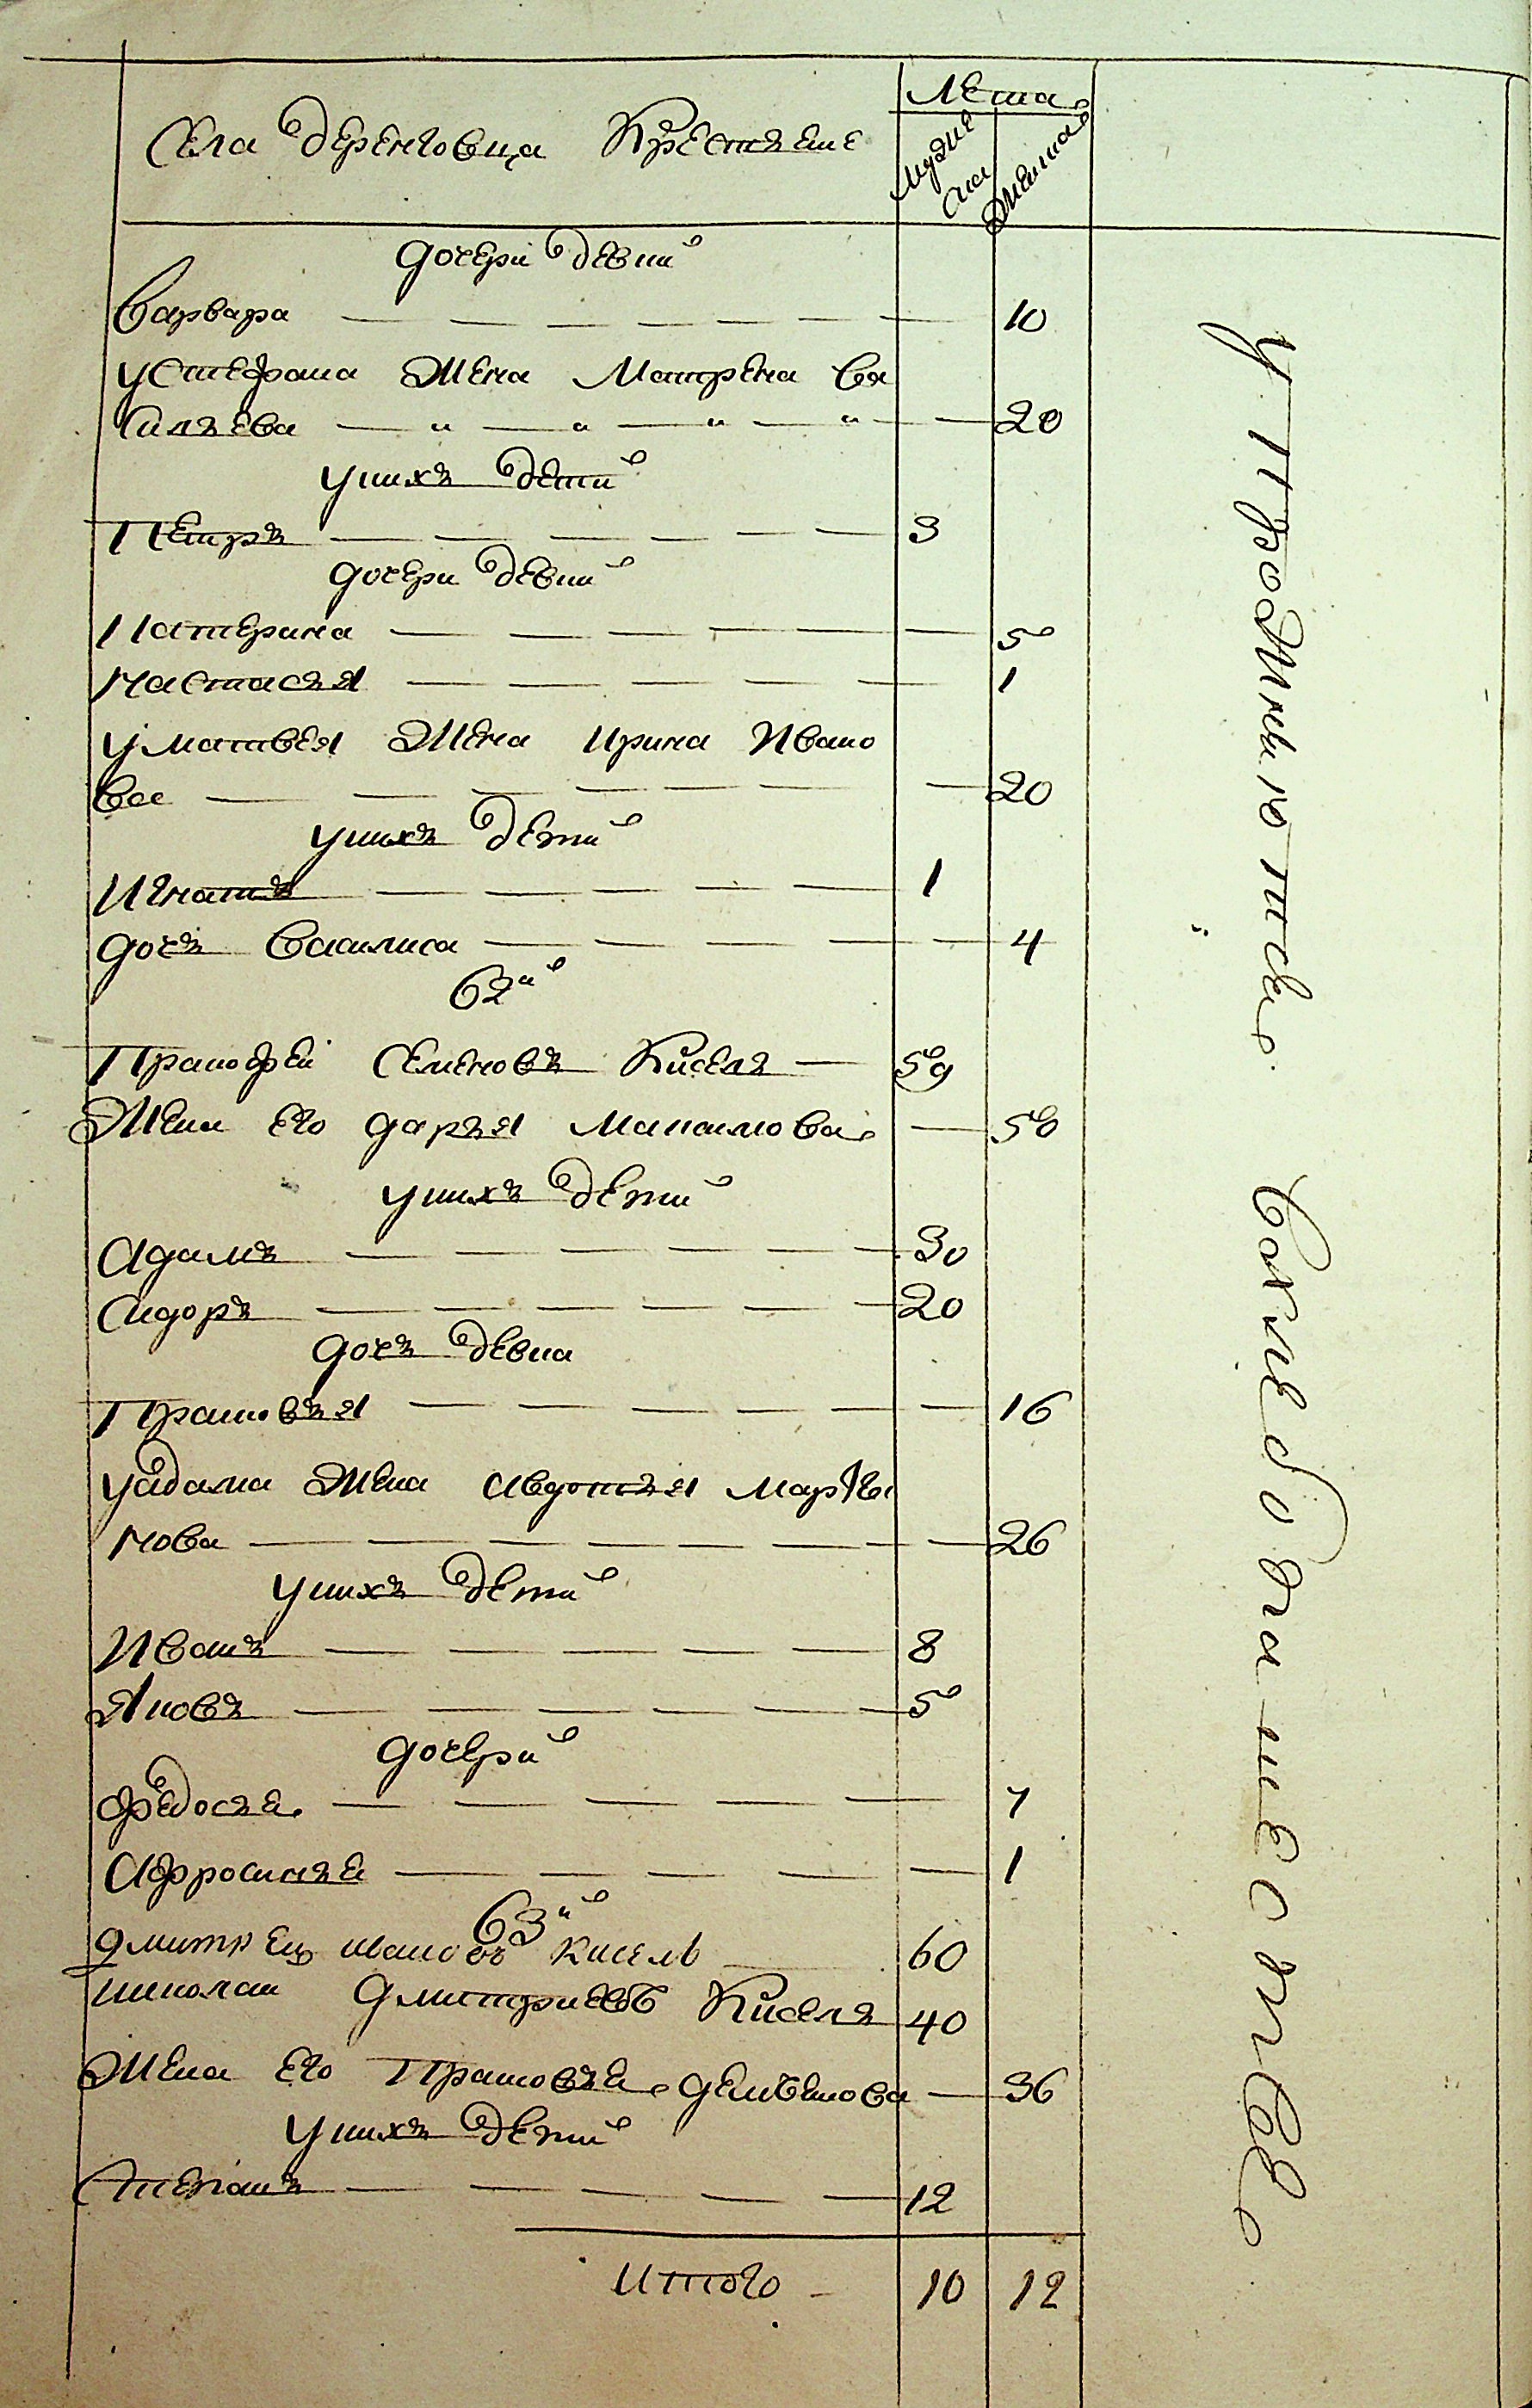 Лета
Села деренговца Крестяне
мужие
ска
женска
дочери девки
Варвара — — — — — — — 10
У Стефана жена Матрена Ва
силъева — " — " — " — " — 20
У нихъ дети
Петръ — — — — — 3
дочери девки
Катерина — — — — — — 5
Настасъя — — — — — 1
У Матвея жена Ирина Ивано
ва — — — — — — 20
У нихъ дети
Игнатъ — — — — — 1
дочъ Василиса — — — — — 4
62й
Пракофей Семеновъ Киселъ — 59
Жена его Даръя Макаимова — 50
У нихъ дети
Адамъ — — — — — — 30
Сидоръ — — — — — — 20
дочъ девка
Прасковъя — — — — — — 16
У Адама жена Авдотъя Марты
нова — — — — — — — 26
У нихъ дети
Иванъ — — — — — 8
Яковъ — — — — — 5
дочери
Федосъя — — — — — 7
Афросинъя — — — — — 1
63й
Дмитрей Ивановъ Кисель — 60
Николай Дмитриевъ Киселъ 40
Жена его Прасковъя Демъянова — 36
У нихъ дети
Степанъ — — — — — 12
Итого - 10 12